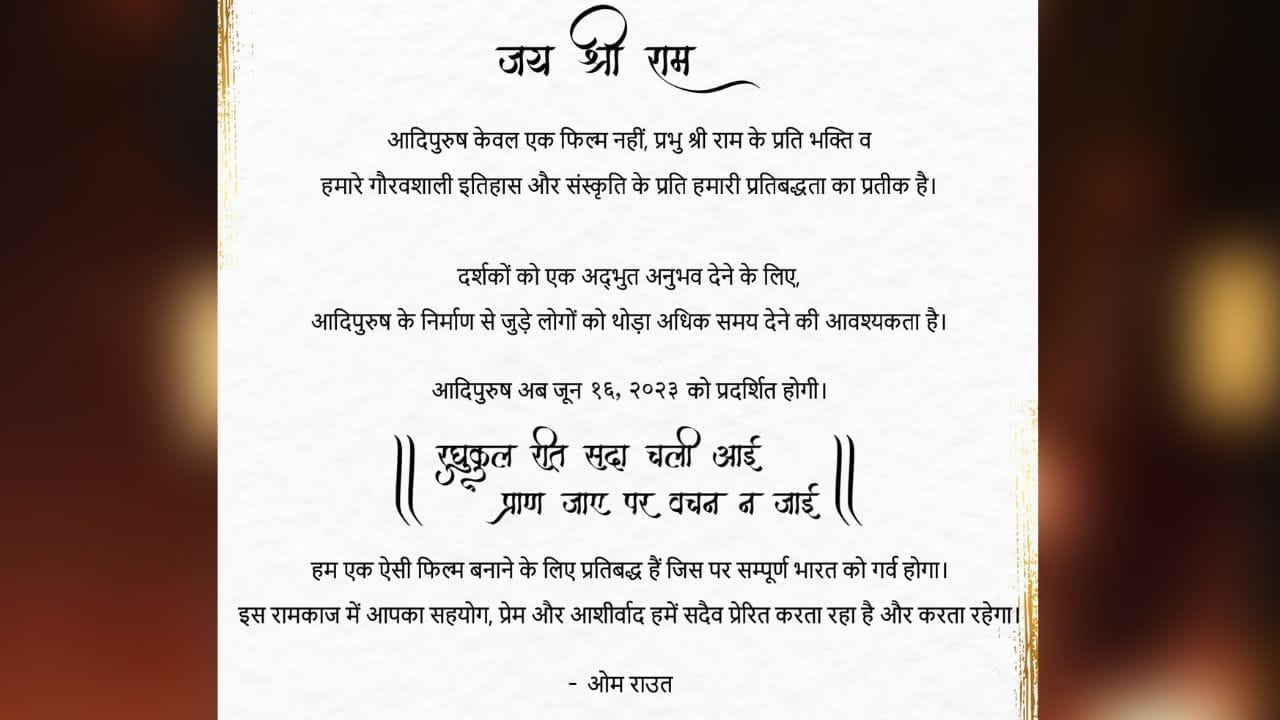 जय श्री राम
आदिपुरुष केवल एक फिल्म नहीं, प्रभु श्री राम के प्रति भक्ति व
हमारे गौरवशाली इतिहास और संस्कृति के प्रति हमारी प्रतिबद्धता का प्रतीक है।
दर्शकों को एक अद्भुत अनुभव देने के लिए,
आदिपुरुष के निर्माण से जुड़े लोगों को थोड़ा अधिक समय देने की आवश्यकता है।
आदिपुरुष अब जून १६, २०२३ को प्रदर्शित होगी।
|| रघुकुल रीत सदा चली आई
प्राण जाए पर वचन न जाई ||
हम एक ऐसी फिल्म बनाने के लिए प्रतिबद्ध हैं जिस पर सम्पूर्ण भारत को गर्व होगा।
इस रामकाज में आपका सहयोग, प्रेम और आशीर्वाद हमें सदैव प्रेरित करता रहा है और करता रहेगा।
- ओम राउत